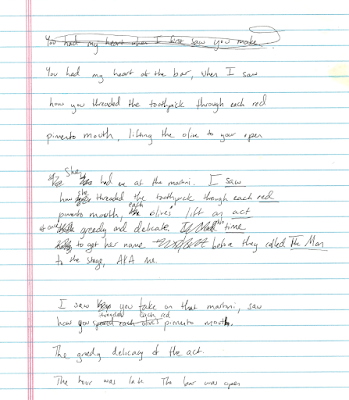 You had my heart when I first saw you make
You had my heart at the bar, when I saw
how you threaded the toothpick through each red
pimento mouth, lifting the olive to your open
She'd
had me at the martini. I saw
how she threaded the toothpick through each red
pimento mouth, each olive's lift an act
at once greedy and delicate. time
to get her name before they called The Man
to the stage, AKA me.
I saw you take on that martini, saw
how you each red pimento mouth,
The greedy delicacy of the act.
The hour was late. The bar was open